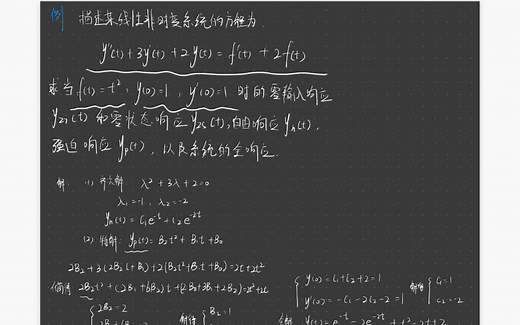 例 描述某线性非时变系统的方程为
y''(t) + 3y'(t) + 2y(t) = f'(t) + 2f(t)
求当 f(t) = t², y(0)=1, y'(0)=1 时的零输入响应
y_zi(t) 和零状态响应 y_zs(t), 自由响应 y_h(t),
强迫响应 y_p(t), 以及系统的全响应.
解: (1) 齐次解: λ² + 3λ + 2 = 0
λ₁ = -1, λ₂ = -2
y_h(t) = C₁e^{-t} + C₂e^{-2t}
(2) 特解: y_p(t) = B₂t² + B₁t + B₀
2B₂ + 3(2B₂t + B₁) + 2(B₂t² + B₁t + B₀) = 2t + 2t²
2B₂t² + (2B₁ + 6B₂)t + (2B₀ + 3B₁ + 2B₂) = 2t² + 2t
2B₂ = 2
B₂ = 1
y(0) = C₁ + C₂ + 2 = 1
y'(0) = -C₁ - 2C₂ - 2 = 1
解得 C₁ = 1
C₂ = -2
y(t) = e^{-t} - 2e^{-2t} + t² - 2t + 2